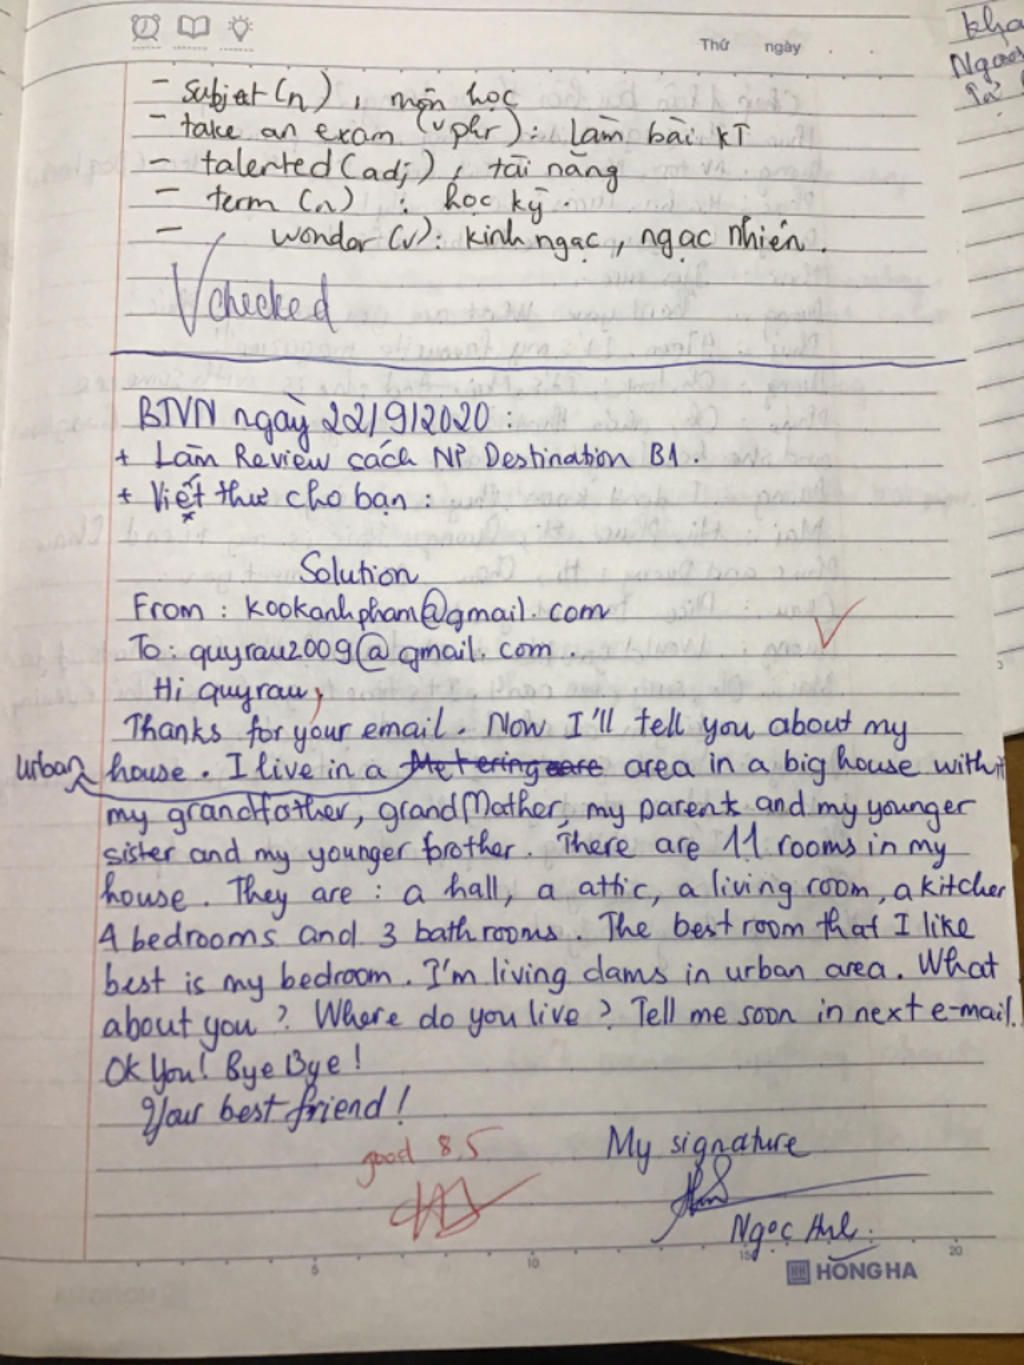 Thứ ngày
kha
- subjet (n) , môn học
- take an exam (v phr) : làm bài KT
- talented (adj) , tài năng
- term (n) : học kỳ .
- wonder (v) : kinh ngạc , ngạc nhiên .
checked
BTVN ngày 22/9/2020 :
+ Làm Review sách NP Destination B1 .
+ Viết thư cho bạn :
Solution
From : kookanhpham@gmail.com
To : quyrau2009@gmail.com .
Hi quyrau,
Thanks for your email . Now I'll tell you about my
urban house . I live in a area in a big house with
my grandfather, grandMother, my parent and my younger
sister and my younger brother . There are 11 rooms in my
house . They are : a hall, a attic, a living room, a kitchen
4 bedrooms and 3 bathrooms . The best room that I like
best is my bedroom . I'm living dams in urban area . What
about you ? Where do you live ? Tell me soon in next e-mail .
Ok You ! Bye Bye !
Your best friend !
good 8,5
My signature
Ngọc
5 10 15 20
HỒNG HÀ